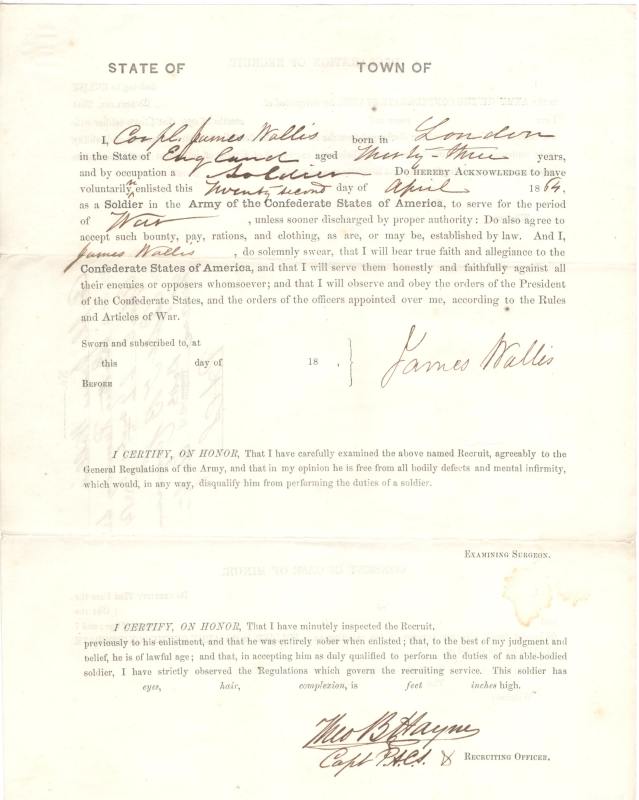 STATE OF TOWN OF
I, Corpl. James Wallis born in London
in the State of England aged thirty-three years,
and by occupation a Soldier Do HEREBY ACKNOWLEDGE to have
voluntarily enlisted this twenty second day of April 1864.
as a Soldier in the Army of the Confederate States of America, to serve for the period
of War , unless sooner discharged by proper authority: Do also agree to
accept such bounty, pay, rations, and clothing, as are, or may be, established by law. And I,
James Wallis , do solemnly swear, that I will bear true faith and allegiance to the
Confederate States of America, and that I will serve them honestly and faithfully against all
their enemies or opposers whomsoever; and that I will observe and obey the orders of the President
of the Confederate States, and the orders of the officers appointed over me, according to the Rules
and Articles of War.
Sworn and subscribed to, at
this day of 18 ,
BEFORE
James Wallis
I CERTIFY, ON HONOR, That I have carefully examined the above named Recruit, agreeably to the
General Regulations of the Army, and that in my opinion he is free from all bodily defects and mental infirmity,
which would, in any way, disqualify him from performing the duties of a soldier.
EXAMINING SURGEON.
I CERTIFY, ON HONOR, That I have minutely inspected the Recruit,
previously to his enlistment, and that he was entirely sober when enlisted; that, to the best of my judgment and
belief, he is of lawful age; and that, in accepting him as duly qualified to perform the duties of an able-bodied
soldier, I have strictly observed the Regulations which govern the recruiting service. This soldier has
eyes, hair, complexion, is feet inches high.
Theo B Hayne
Capt P.A.C.S. RECRUITING OFFICER.